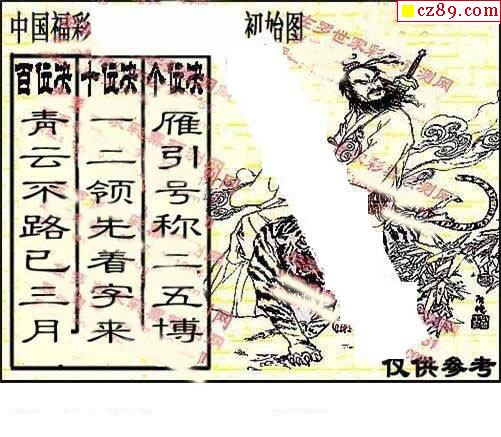 cz89.com
中国福彩
初始图
百位决 十位决 个位决
青云不路已三月
一二领先着字来
雁引号称二五博
仅供参考